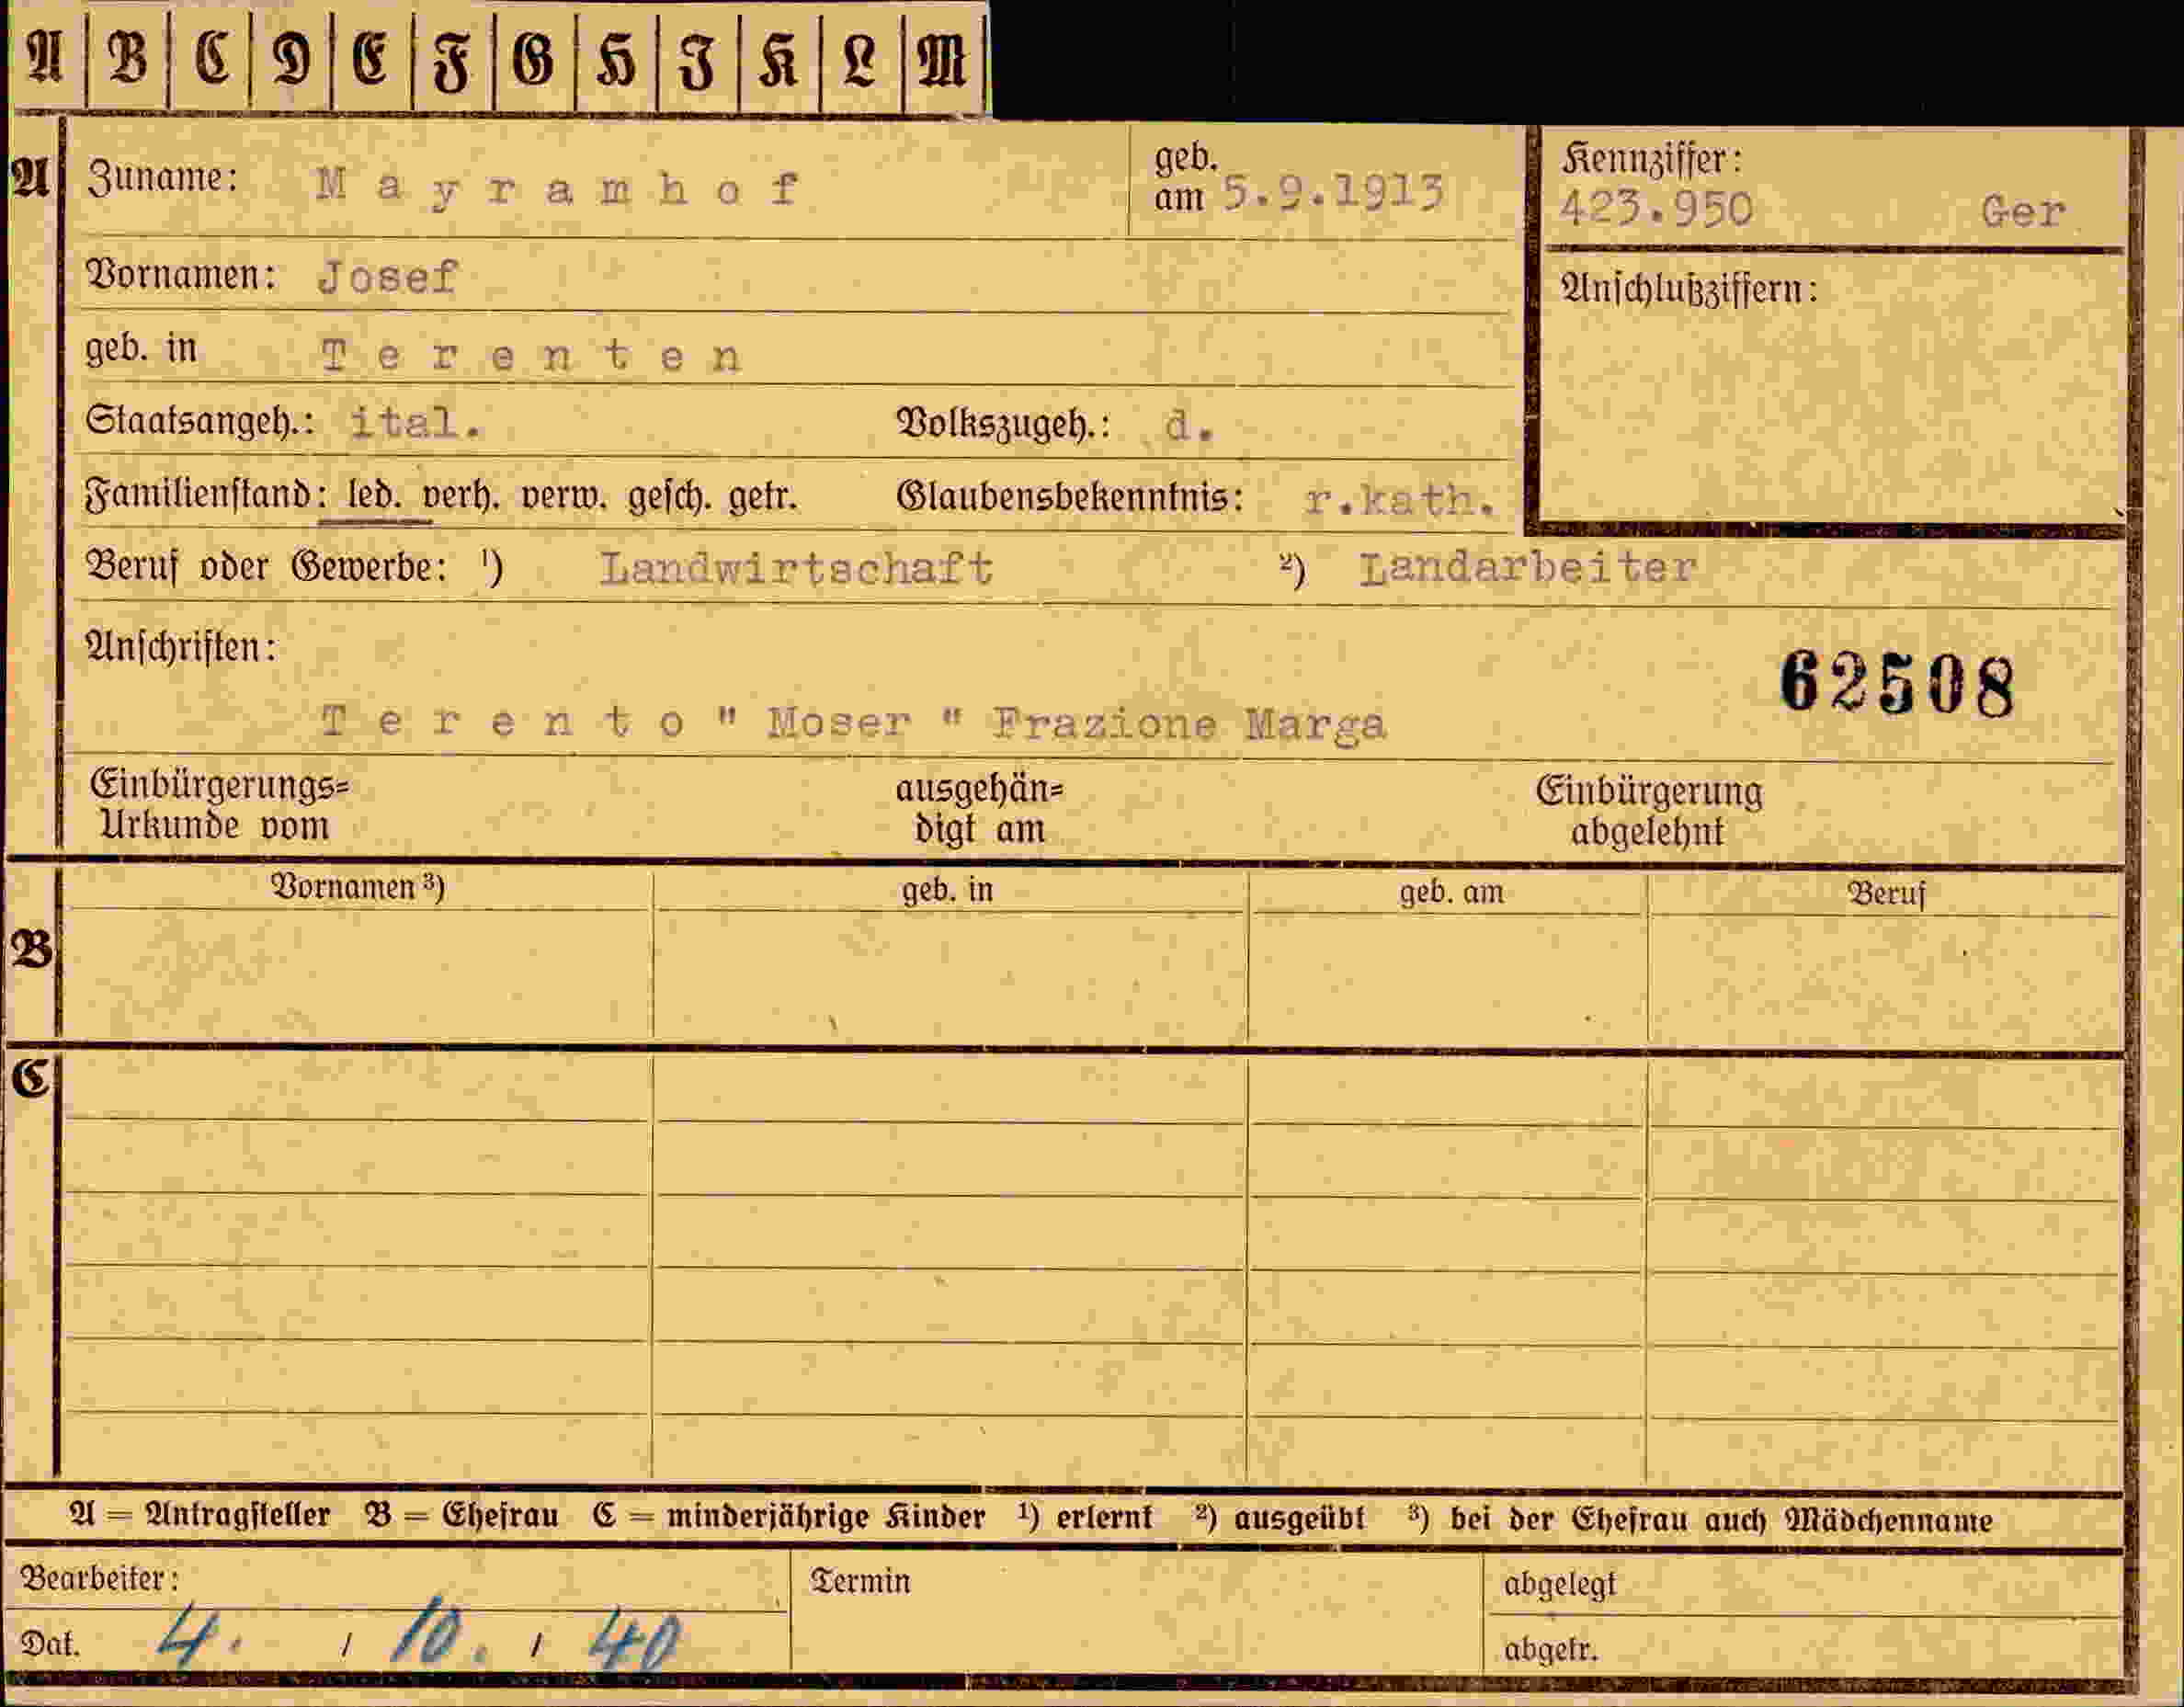 A B C D E F G H I K L M
A Zuname: Mayramhof geb. am 5.9.1913 Kennziffer: 423.950 Ger
Vornamen: Josef Anschlußziffern:
geb. in Terenten
Staatsangeh.: ital. Volkszugeh.: d.
Familienstand: led. verh. verw. gesch. getr. Glaubensbekenntnis: r.kath.
Beruf oder Gewerbe: ¹) Landwirtschaft ²) Landarbeiter
Anschriften: 62508
Terento " Moser " Frazione Marga
Einbürgerungs= ausgehän= Einbürgerung
Urkunde vom digt am abgelehnt
B Vornamen ³) geb. in geb. am Beruf
C
A = Antragsteller B = Ehefrau C = minderjährige Kinder ¹) erlernt ²) ausgeübt ³) bei der Ehefrau auch Mädchenname
Bearbeiter: Termin abgelegt
Dat. 4. / 10. / 40 abgetr.